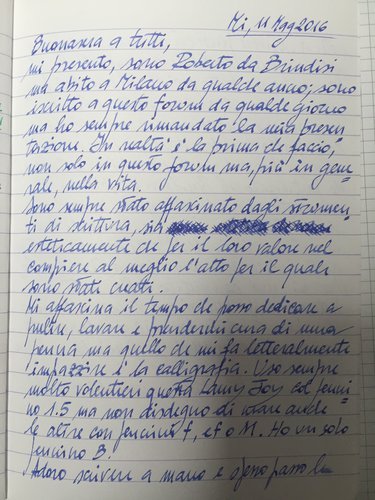 Mi, 11 Mag 2016
Buonasera a tutti,
mi presento, sono Roberto da Brindisi
ma abito a Milano da qualche anno; sono
iscritto a questo forum da qualche giorno
ma ho sempre rimandato la mia presen
tazione. In realtà è la prima che faccio,
non solo in questo forum ma, più in gene=
rale, nella vita.
Sono sempre stato affascinato dagli strumen
ti di scrittura, sia
esteticamente che per il loro valore nel
compiere al meglio l'atto per il quale
sono state creati.
Mi affascina il tempo che posso dedicare a
pulire, lavare e prendermi cura di una
penna ma quello che mi fa letteralmente
impazzire è la calligrafia. Uso sempre
molto volentieri questa Lamy Joy col penni=
no 1.5 ma non disdegno di usare anche
le altre con pennini f, ef o M. Ho un solo
pennino B.
Adoro scrivere a mano e spesso passo